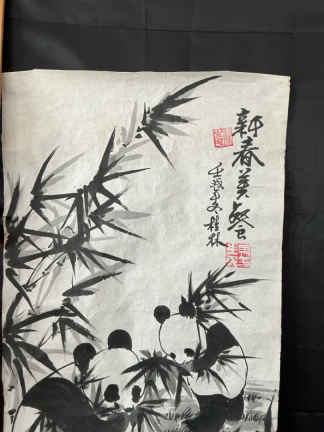 新春美餐
壬戌冬桂林